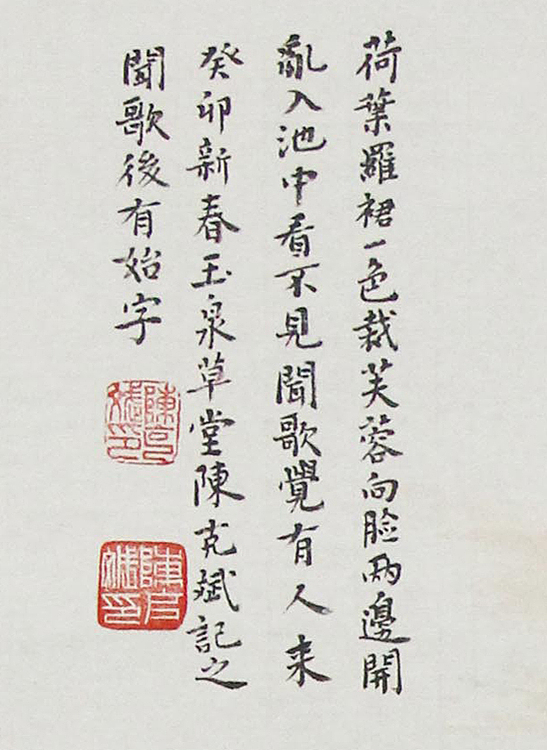 荷葉羅裙一色裁芙蓉向脸兩邊開
亂入池中看不見聞歌覺有人来
癸卯新春玉泉草堂陳克斌記之
聞歌後有始字